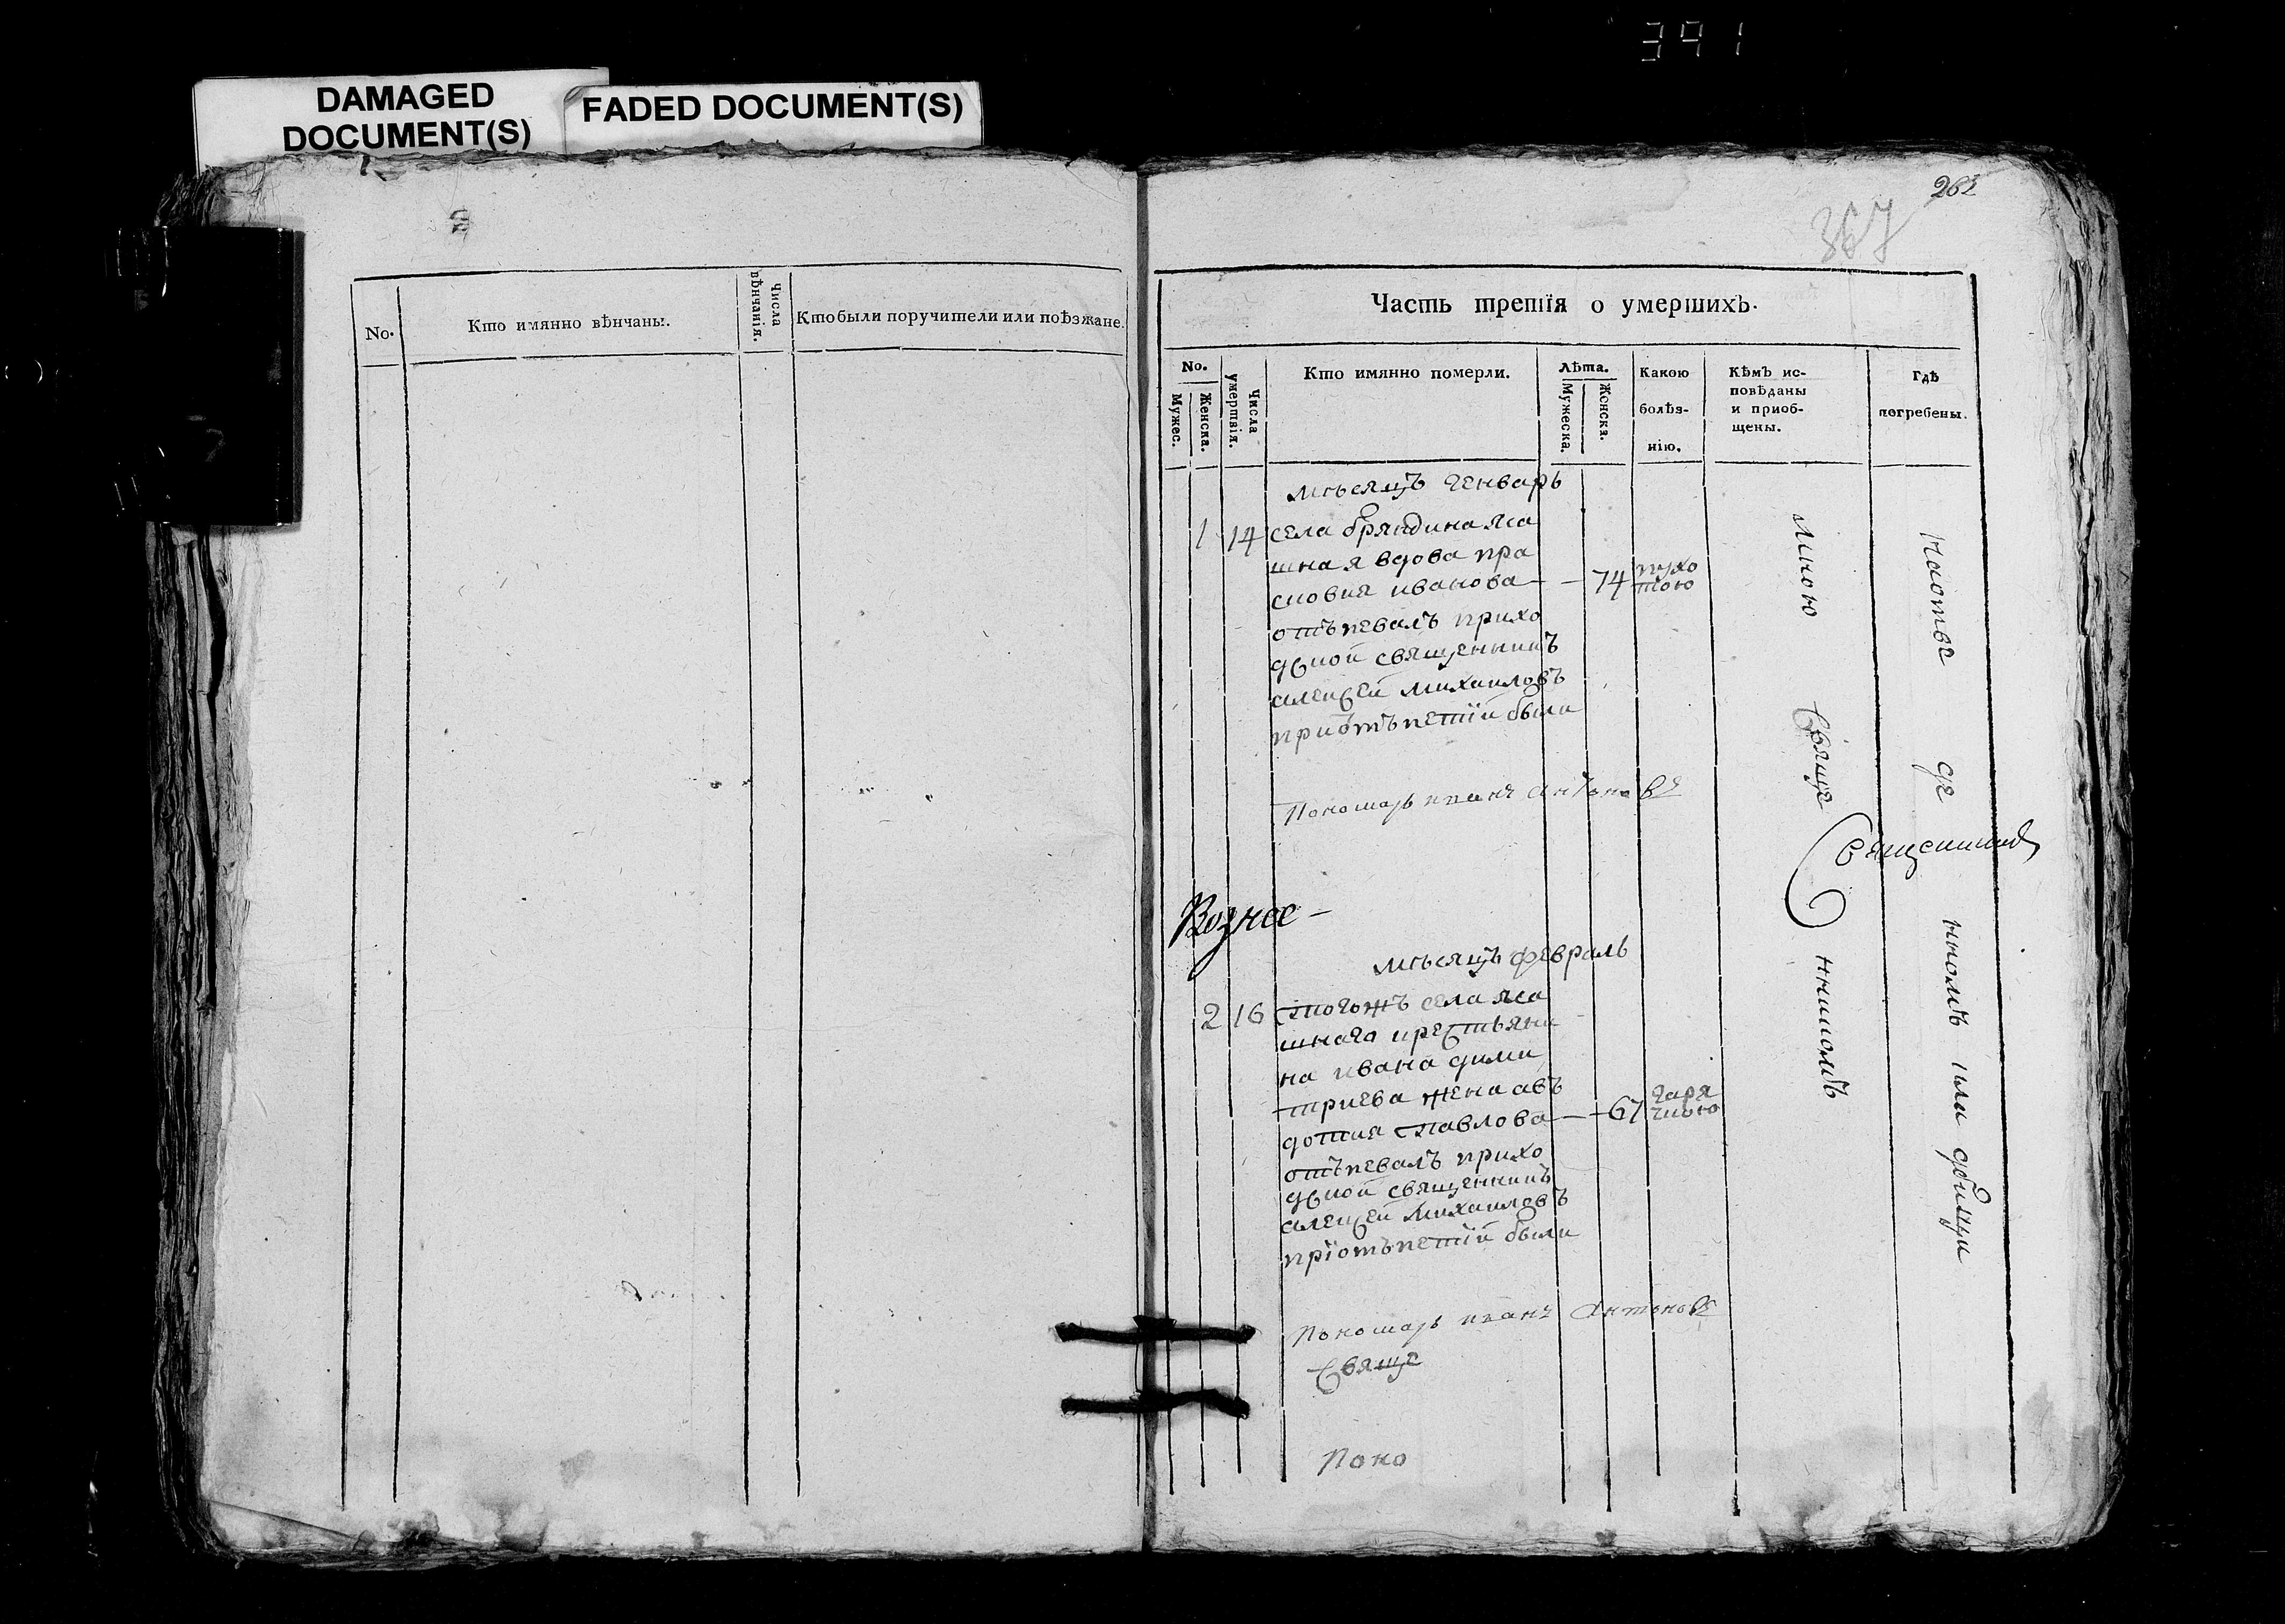 391
DAMAGED
DOCUMENT(S)
FADED DOCUMENT(S)
262
367
No.
Кто имянно вѣнчаны.
Числа
вѣнчанія.
Кто были поручители или поѣзжане.
Часть третїя о умершихъ.
No.
Мужес.
Женска.
Числа
умертвія.
Кто имянно померли.
Лѣта.
Мужеска.
Женска.
Какою
болѣз-
нію.
Кѣмъ ис-
повѣданы
и приоб-
щены.
Гдѣ
погребены.
мѣсяцъ генварь
1 14 села бряндина яса
шная вдова пра
сковия иванова — — 74 пухо
тою
отъпевалъ прихо
дской священникъ
алексей михаиловъ
приотъпетїи были
Пономарь иванъ антоновъ
мною
Свяще
нникомъ
на отве
де
нномъ
кладбищи
Священникъ
Вознес-
мѣсяцъ февраль
2 16 тогожъ села яса
шнаго крестьяни
на ивана дими
триева жена авъ
дотия павлова — — 67 гаря
чкою
отъпевалъ прихо
дской священникъ
алексей михаиловъ
прїотъпетїи были
Пономарь иванъ антоновъ
Свяще
Поно